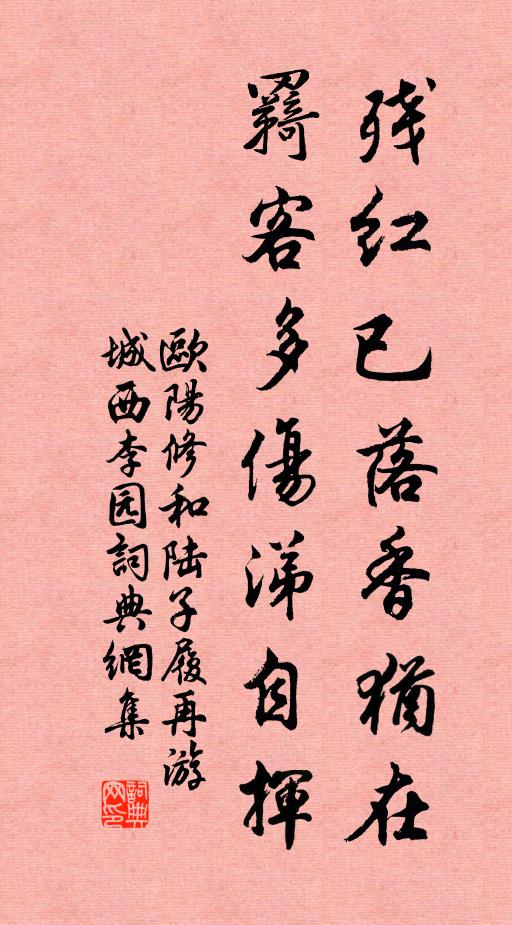 残红已落香猶在
羇客多傷涕自揮
歐陽修和陆子履再游
城西李园詞典網集
詞典网印